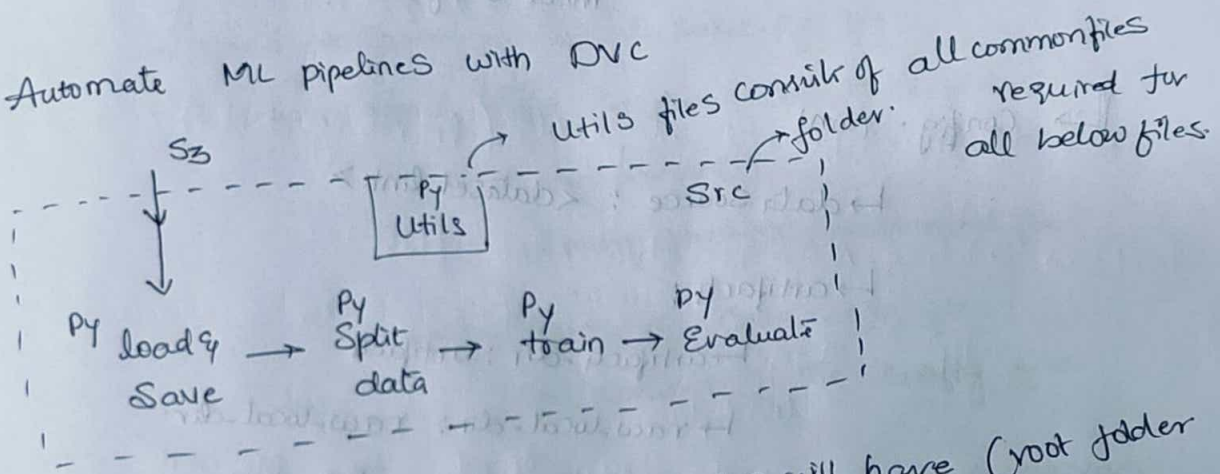 Automate ML pipelines with DVC
Utils files consist of all common files
required for
all below files.
S3
folder.
Py
Utils
Src
Py load &
Save
Py
Split
data
Py
train
Py
Evaluate
will have (root folder